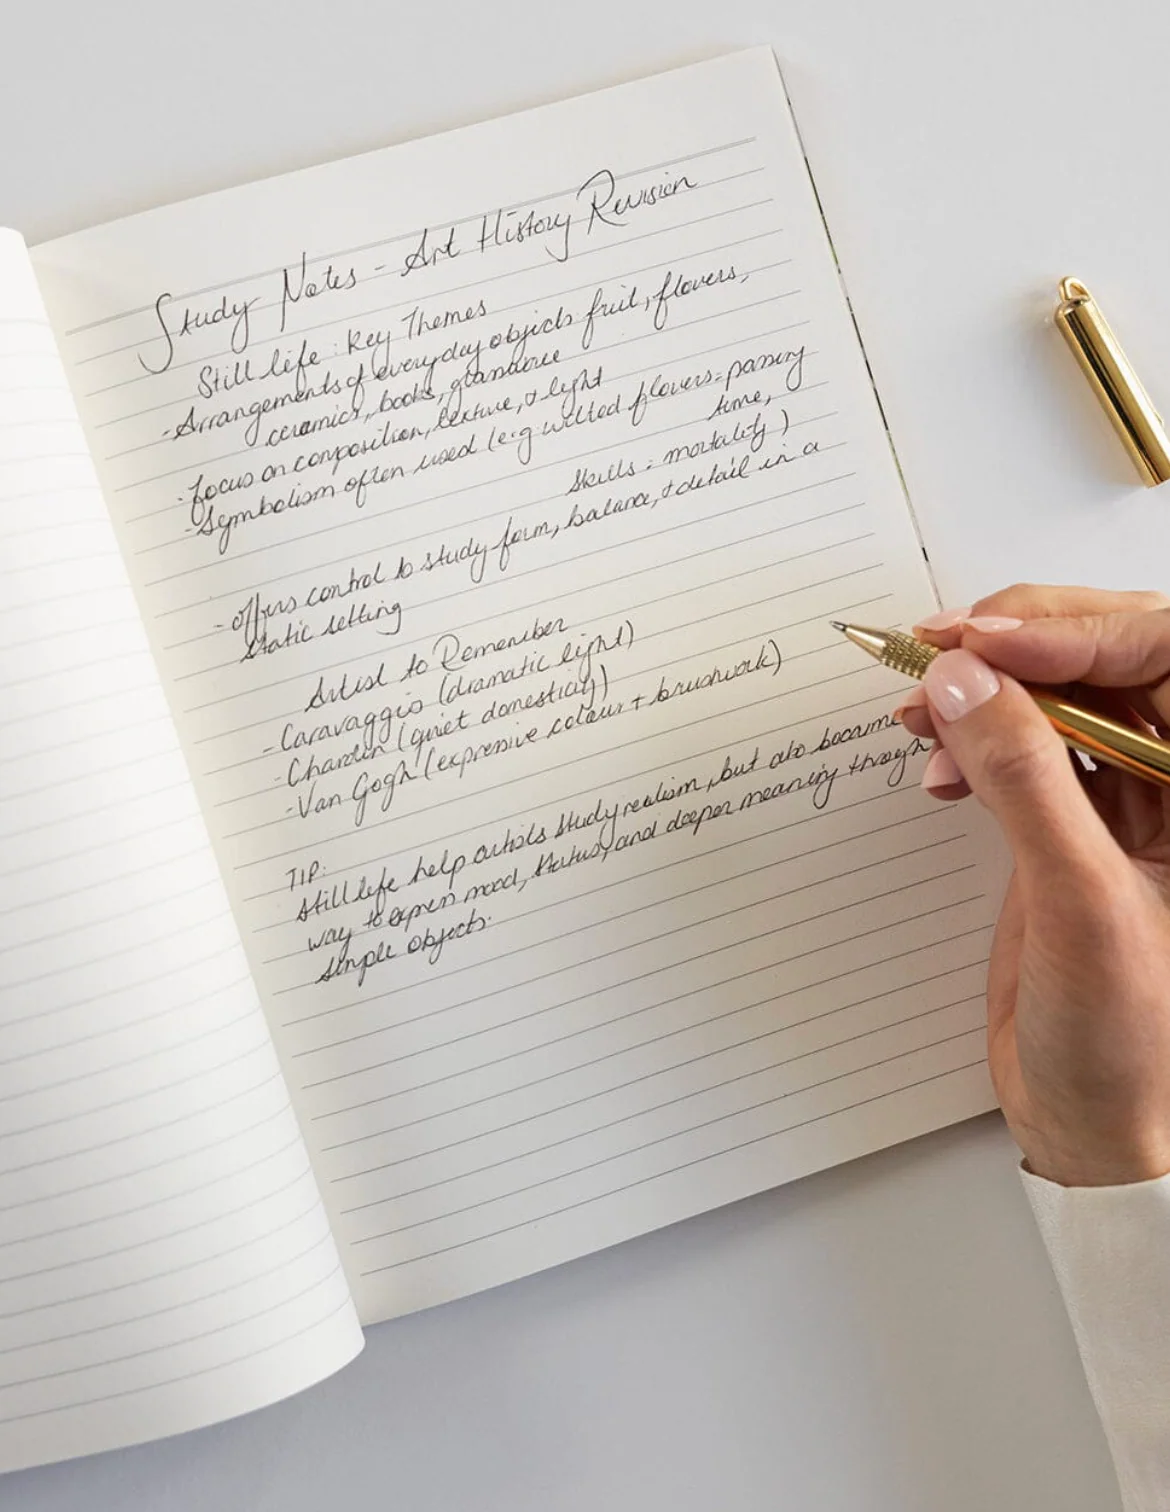 Study Notes - Art History Revision
Still life: Key Themes
- Arrangements of everyday objects fruit, flowers,
ceramics, books, glassware
- Focus on composition, texture, & light
- Symbolism often used (e.g wilted flowers = passing
time,
Skills: mortality)
- offers control to study form, balance, & detail in a
static setting
Artist to Remember
- Caravaggio (dramatic light)
- Chardin (quiet domesticity)
- Van Gogh (expressive colour + brushwork)
TIP:
Still life help artists study realism, but also became
way to express mood, status, and deeper meaning through
simple objects.